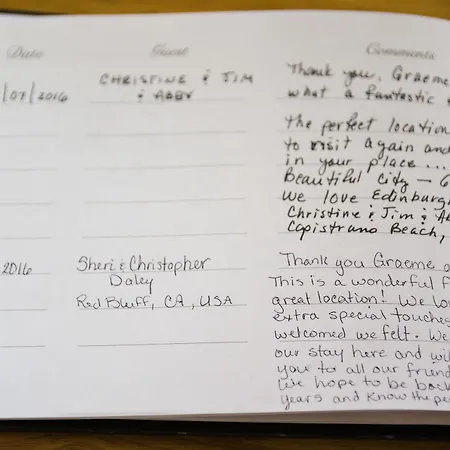 Date Guest Comments
/07/2016 CHRISTINE & JIM Thank you, Graeme
& ABBY what a fantastic
the perfect location
to visit again and
in your place ...
Beautiful city —
We love Edinburgh
Christine & Jim & Ab
Capistrano Beach,
2016 Sheri & Christopher Thank you Graeme
Daley This is a wonderful f
Red Bluff, CA, USA great location! We lo
extra special touches
welcomed we felt. We
our stay here and wil
you to all our friend
We hope to be back
years and know the pe